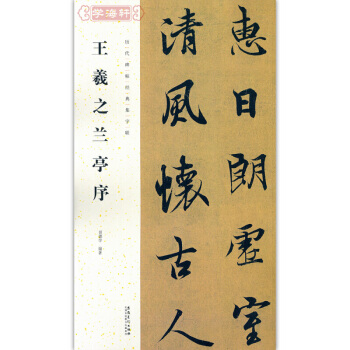 学海轩
历代碑帖经典集字联
王羲之兰亭序
惠日朗虚室
清風懷古人